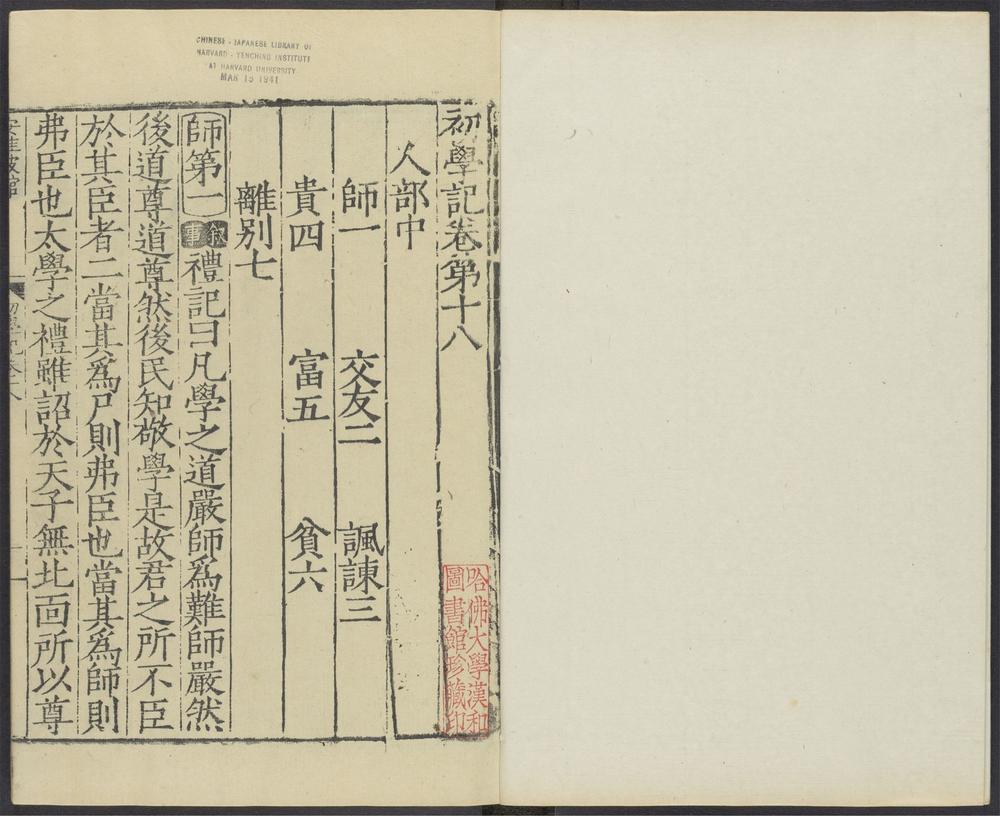 CHINESE - JAPANESE LIBRARY OF
HARVARD - YENCHING INSTITUTE
AT HARVARD UNIVERSITY
MAR 15 1941
初學記卷第十八
人部中
師一 交友二 諷諫三
貴四 富五 貧六
離别七
師第一 敘事 禮記曰凡學之道嚴師爲難師嚴然
後道尊道尊然後民知敬學是故君之所不臣
於其臣者二當其爲尸則弗臣也當其爲師則
弗臣也太學之禮雖詔於天子無北面所以尊
安桂坡館
初學記卷十八
一
哈佛大學漢和
圖書館珍藏印